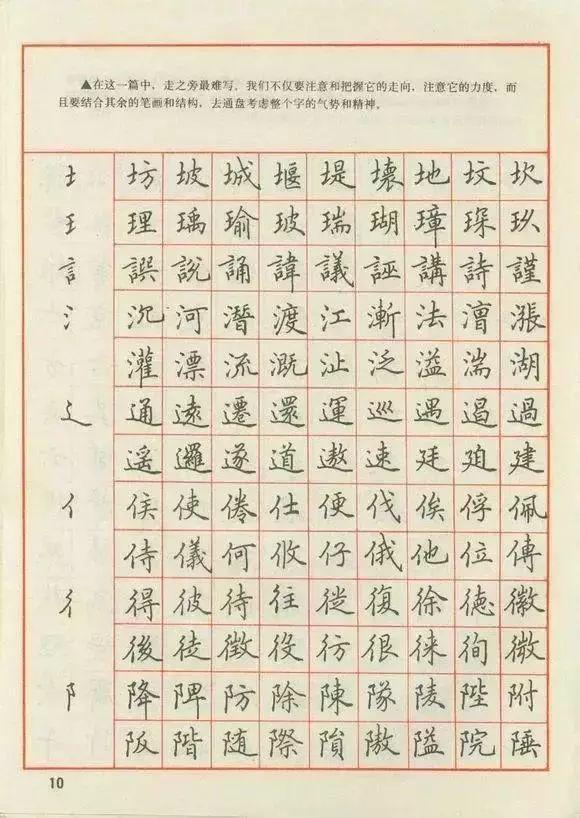 ▲在这一篇中，走之旁最难写。我们不仅要注意和把握它的走向，注意它的力度，而
且要结合其余的笔画和结构，去通盘考虑整个字的气势和精神。
土 坊 坡 城 堰 堤 壞 地 坟 坎
王 理 瑀 瑜 玻 瑞 瑚 璋 琛 玖
言 譔 說 誦 諱 議 誣 講 詩 謹
氵 沉 河 潛 渡 江 漸 法 漕 漲
灌 漂 流 溉 沚 泛 溢 湍 湖
辶 通 遠 遷 還 運 巡 遇 遏 過
遥 邏 遂 道 遨 速 廷 廻 建
亻 侯 使 倦 仕 便 伐 俟 俘 佩
侍 儀 何 攸 仔 俄 他 位 傳
彳 得 彼 待 往 從 復 徐 德 徽
後 徒 徵 役 彷 很 徠 徇 微
阝 降 陴 防 除 陳 隊 陵 陛 附
阪 階 随 際 隕 隘 院 陲
10